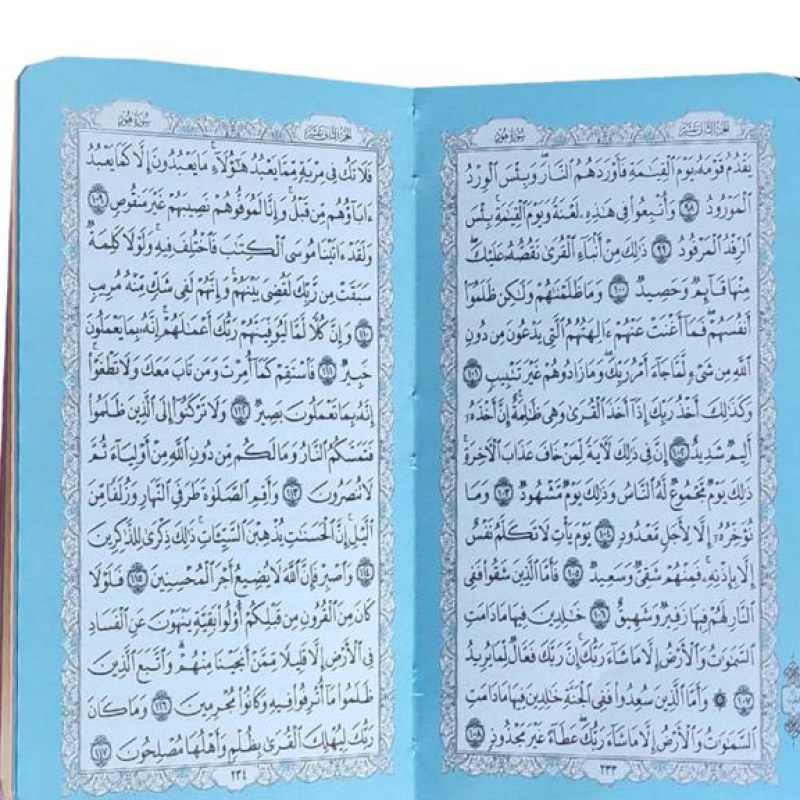 الجزء الثاني عشر
سورة هود
يَقْدُمُ قَوْمَهُۥ يَوْمَ ٱلْقِيَٰمَةِ فَأَوْرَدَهُمُ ٱلنَّارَ ۖ وَبِئْسَ ٱلْوِرْدُ
ٱلْمَوْرُودُ ٩٨ وَأُتْبِعُوا۟ فِى هَٰذِهِۦ لَعْنَةً وَيَوْمَ ٱلْقِيَٰمَةِ ۚ بِئْسَ
ٱلرِّفْدُ ٱلْمَرْفُودُ ٩٩ ذَٰلِكَ مِنْ أَنۢبَآءِ ٱلْقُرَىٰ نَقُصُّهُۥ عَلَيْكَ ۖ
مِنْهَا قَآئِمٌ وَحَصِيدٌ ١٠٠ وَمَا ظَلَمْنَٰهُمْ وَلَٰكِن ظَلَمُوٓا۟
أَنفُسَهُمْ ۖ فَمَآ أَغْنَتْ عَنْهُمْ ءَالِهَتُهُمُ ٱلَّتِى يَدْعُونَ مِن دُونِ
ٱللَّهِ مِن شَىْءٍ لَّمَّا جَآءَ أَمْرُ رَبِّكَ ۖ وَمَا زَادُوهُمْ غَيْرَ تَتْبِيبٍ ١٠١
وَكَذَٰلِكَ أَخْذُ رَبِّكَ إِذَآ أَخَذَ ٱلْقُرَىٰ وَهِىَ ظَٰلِمَةٌ ۚ إِنَّ أَخْذَهُۥٓ
أَلِيمٌ شَدِيدٌ ١٠٢ إِنَّ فِى ذَٰلِكَ لَءَايَةً لِّمَنْ خَافَ عَذَابَ ٱلْءَاخِرَةِ ۚ
ذَٰلِكَ يَوْمٌ مَّجْمُوعٌ لَّهُ ٱلنَّاسُ وَذَٰلِكَ يَوْمٌ مَّشْهُودٌ ١٠٣ وَمَا
نُؤَخِّرُهُۥٓ إِلَّا لِأَجَلٍ مَّعْدُودٍ ١٠٤ يَوْمَ يَأْتِ لَا تَكَلَّمُ نَفْسٌ
إِلَّا بِإِذْنِهِۦ ۚ فَمِنْهُمْ شَقِىٌّ وَسَعِيدٌ ١٠٥ فَأَمَّا ٱلَّذِينَ شَقُوا۟ فَفِى
ٱلنَّارِ لَهُمْ فِيهَا زَفِيرٌ وَشَهِيقٌ ١٠٦ خَٰلِدِينَ فِيهَا مَا دَامَتِ
ٱلسَّمَٰوَٰتُ وَٱلْأَرْضُ إِلَّا مَا شَآءَ رَبُّكَ ۚ إِنَّ رَبَّكَ فَعَّالٌ لِّمَا يُرِيدُ
١٠٧ ۞ وَأَمَّا ٱلَّذِينَ سُعِدُوا۟ فَفِى ٱلْجَنَّةِ خَٰلِدِينَ فِيهَا مَا دَامَتِ
ٱلسَّمَٰوَٰتُ وَٱلْأَرْضُ إِلَّا مَا شَآءَ رَبُّكَ ۖ عَطَآءً غَيْرَ مَجْذُوذٍ ١٠٨
٢٣٣
الجزء الثاني عشر
سورة هود
فَلَا تَكُ فِى مِرْيَةٍ مِّمَّا يَعْبُدُ هَٰٓؤُلَآءِ ۚ مَا يَعْبُدُونَ إِلَّا كَمَا يَعْبُدُ
ءَابَآؤُهُم مِّن قَبْلُ ۚ وَإِنَّا لَمُوَفُّوهُمْ نَصِيبَهُمْ غَيْرَ مَنقُوصٍ ١٠٩
وَلَقَدْ ءَاتَيْنَا مُوسَى ٱلْكِتَٰبَ فَٱخْتُلِفَ فِيهِ ۚ وَلَوْلَا كَلِمَةٌ
سَبَقَتْ مِن رَّبِّكَ لَقُضِىَ بَيْنَهُمْ ۚ وَإِنَّهُمْ لَفِى شَكٍّ مِّنْهُ مُرِيبٍ
١١٠ وَإِنَّ كُلًّا لَّمَّا لَيُوَفِّيَنَّهُمْ رَبُّكَ أَعْمَٰلَهُمْ ۚ إِنَّهُۥ بِمَا يَعْمَلُونَ
خَبِيرٌ ١١١ فَٱسْتَقِمْ كَمَآ أُمِرْتَ وَمَن تَابَ مَعَكَ وَلَا تَطْغَوْا۟ ۚ
إِنَّهُۥ بِمَا تَعْمَلُونَ بَصِيرٌ ١١٢ وَلَا تَرْكَنُوٓا۟ إِلَى ٱلَّذِينَ ظَلَمُوا۟
فَتَمَسَّكُمُ ٱلنَّارُ وَمَا لَكُم مِّن دُونِ ٱللَّهِ مِنْ أَوْلِيَآءَ ثُمَّ
لَا تُنصَرُونَ ١١٣ وَأَقِمِ ٱلصَّلَوٰةَ طَرَفَىِ ٱلنَّهَارِ وَزُلَفًا مِّنَ
ٱلَّيْلِ ۚ إِنَّ ٱلْحَسَنَٰتِ يُذْهِبْنَ ٱلسَّيِّـَٔاتِ ۚ ذَٰلِكَ ذِكْرَىٰ لِلذَّٰكِرِينَ
١١٤ وَٱصْبِرْ فَإِنَّ ٱللَّهَ لَا يُضِيعُ أَجْرَ ٱلْمُحْسِنِينَ ١١٥ فَلَوْلَا
كَانَ مِنَ ٱلْقُرُونِ مِن قَبْلِكُمْ أُو۟لُوا۟ بَقِيَّةٍ يَنْهَوْنَ عَنِ ٱلْفَسَادِ
فِى ٱلْأَرْضِ إِلَّا قَلِيلًا مِّمَّنْ أَنجَيْنَا مِنْهُمْ ۗ وَٱتَّبَعَ ٱلَّذِينَ
ظَلَمُوا۟ مَآ أُتْرِفُوا۟ فِيهِ وَكَانُوا۟ مُجْرِمِينَ ١١٦ وَمَا كَانَ
رَبُّكَ لِيُهْلِكَ ٱلْقُرَىٰ بِظُلْمٍ وَأَهْلُهَا مُصْلِحُونَ ١١٧
٢٣٤